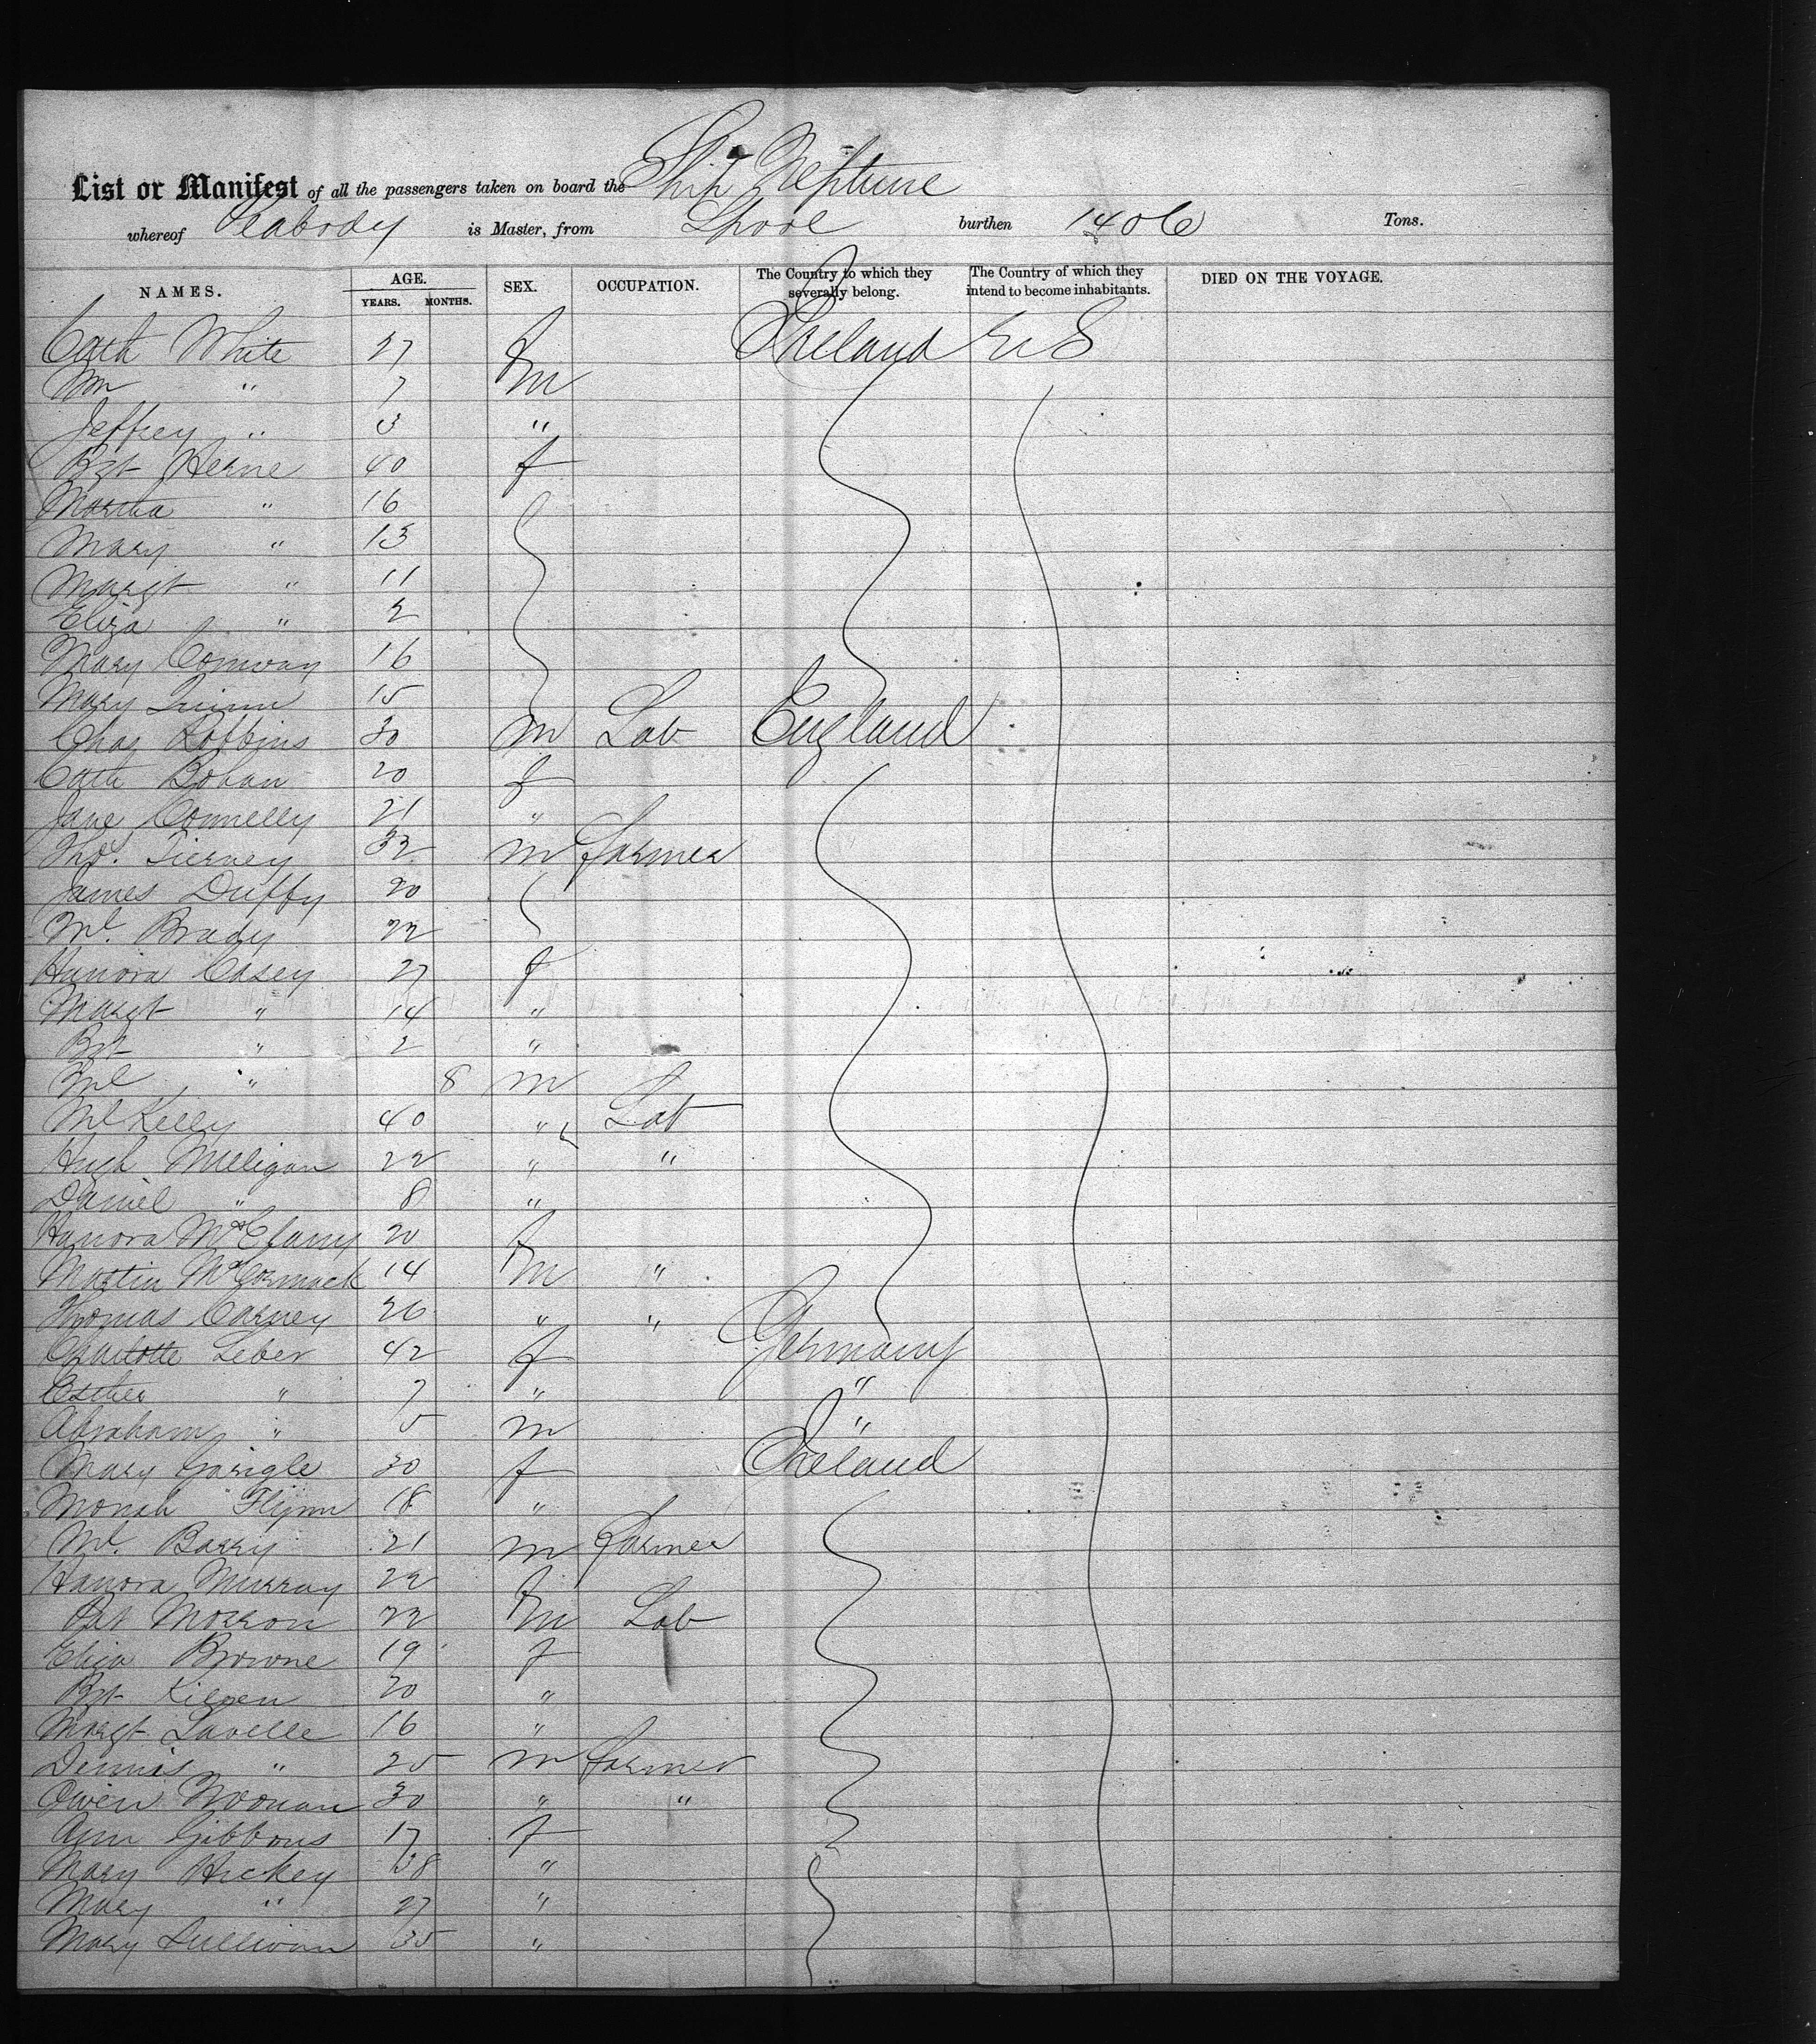 List or Manifest of all the passengers taken on board the Ship Neptune
whereof Peabody is Master, from Lpool burthen 1406 Tons.
NAMES. AGE. YEARS. MONTHS. SEX. OCCUPATION. The Country to which they severally belong. The Country of which they intend to become inhabitants. DIED ON THE VOYAGE.
Cath White 27 f Ireland U S
Wm " 7 m
Jeffrey " 3 "
Bgt Herne 40 f
Martha " 16
Mary " 13
Margt " 11
Eliza " 2
Mary Conway 16
Mary Quinn 15
Chas Robbins 30 m Lab England
Cath Bohan 20 f
Jane Connelly 21 "
Thos. Tierney 32 m farmer
James Duffy 20
Ml. Brady 22
Hanora Casey 27 f
Margt " 14 "
Bgt " 2 "
Ml " 8 m
Ml Kelly 40 " Lab
Hugh Milligan 22 " "
Daniel " 8 "
Hanora 20 f
Martin McCormack 14 m "
Thomas Carney 26 " "
Charlotte Leber 42 f Germany
Esther " 7 " "
Abraham " 5 m "
Mary Garigle 30 f Ireland
Monah Flynn 18 "
Ml. Barry 21 m farmer
Hanora Murray 22 f
Pat Morron 22 m Lab
Eliza Browne 19 f
Bgt Kileen 20 "
Margt Lavelle 16 "
Dennis " 25 m farmer
Owen Noonan 30 " "
Ann Gibbons 17 f
Mary Hickey 38 "
Mary " 27 "
Mary Sullivan 35 "